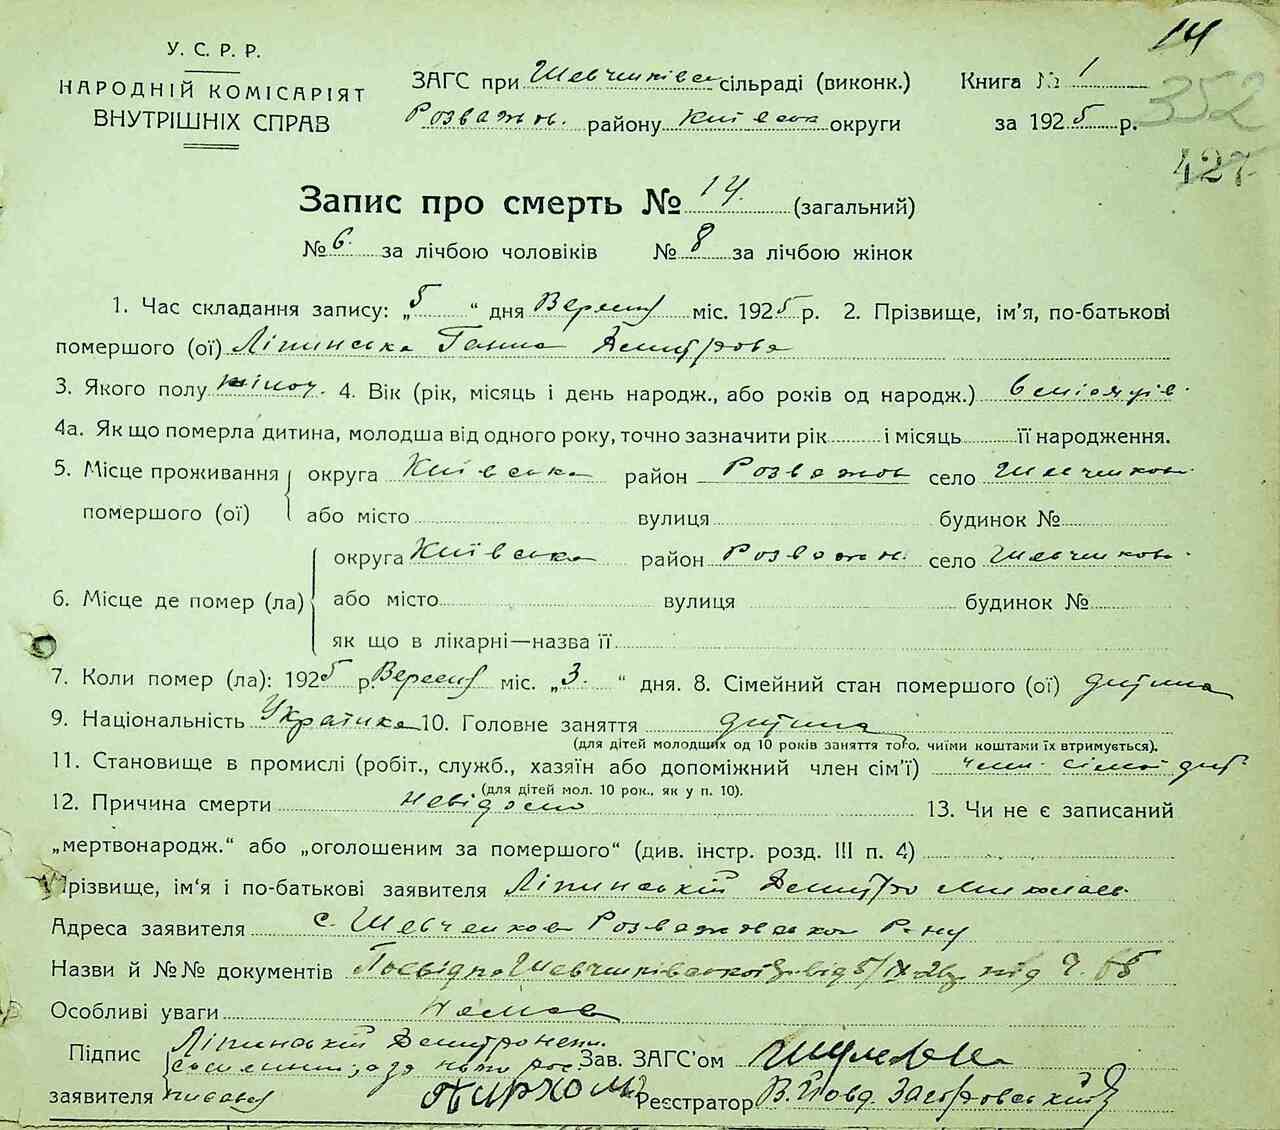 14
352
427
У. С. Р. Р.
НАРОДНІЙ КОМІСАРІЯТ
ВНУТРІШНІХ СПРАВ
ЗАГС при Шевченківск сільраді (виконк.)
Розважн. району Київськ округи
Книга № 1
за 1925 р.
Запис про смерть № 14. (загальний)
№ 6. за лічбою чоловіків № 8 за лічбою жінок
1. Час складання запису: „5 “ дня Вересня міс. 1925 р. 2. Прізвище, ім'я, по-батькові
помершого (ої) Ліпинська Ганна Дмитрова
3. Якого полу жіноч. 4. Вік (рік, місяць і день народж., або років од народж.) 6 місяців
4а. Як що померла дитина, молодша від одного року, точно зазначити рік і місяць її народження.
5. Місце проживання помершого (ої) округа Київська район Розважов село Шевченково
або місто вулиця будинок №
6. Місце де помер (ла) округа Київська район Розважн. село Шевченково
або місто вулиця будинок №
як що в лікарні—назва її
7. Коли помер (ла): 1925 р. Вересня міс. „3. “ дня. 8. Сімейний стан помершого (ої) дитина
9. Національність Українка 10. Головне заняття дитина
(для дітей молодших од 10 років заняття того, чиїми коштами їх втримується).
11. Становище в промислі (робіт., служб., хазяїн або допоміжний член сім'ї) член сімої дит
(для дітей мол. 10 рок., як у п. 10).
12. Причина смерти невідомо 13. Чи не є записаний
„мертвонародж.“ або „оголошеним за помершого“ (див. інстр. розд. III п. 4)
Прізвище, ім'я і по-батькові заявителя Ліпинській Дмитро Миколаев
Адреса заявителя с. Шевченково Розважевськог Р-ну
Назви й №№ документів Посвідка Шевченківської від 5/IX-25 під Ч. 65
Особливі уваги Немає
Підпис заявителя Ліпинській Дмитро непи.
Зав. ЗАГС'ом
Пархом
Реєстратор В. Йовд. Загоровській